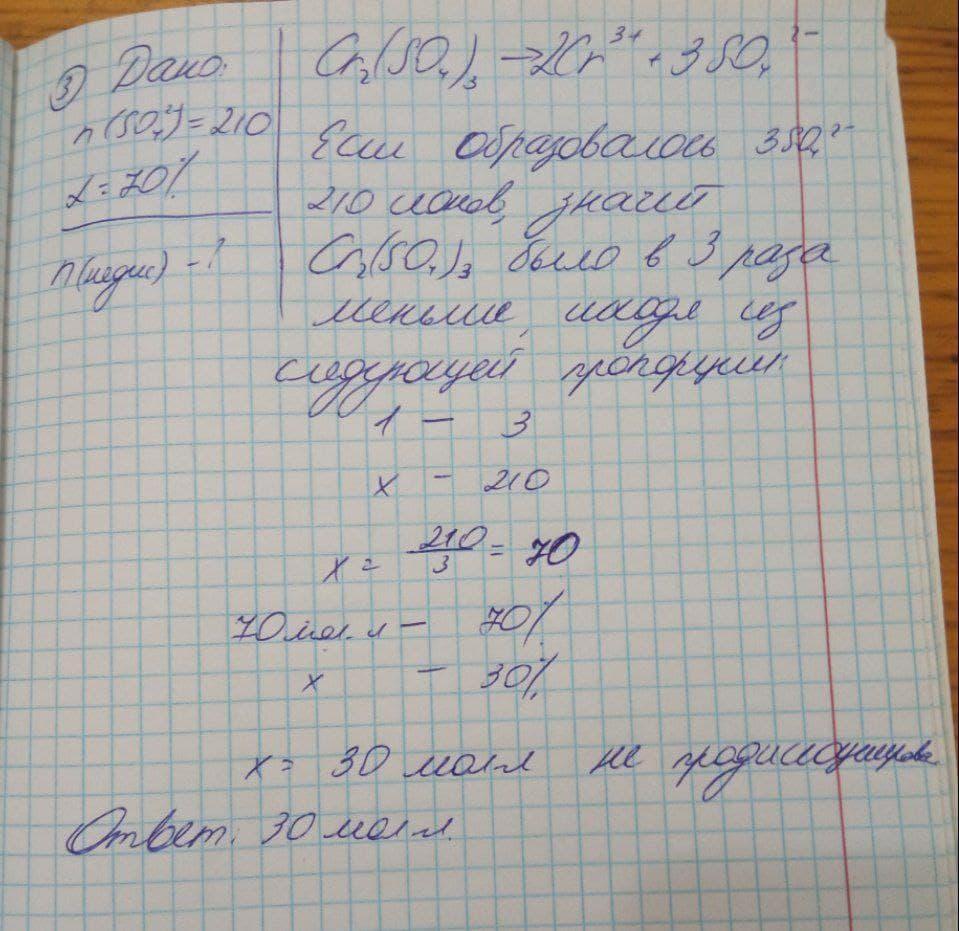 ③ Дано:
n(SO₄²⁻) = 210
α = 70%
n(недис) - ?
Cr₂(SO₄)₃ → 2Cr³⁺ + 3SO₄²⁻
Если образовалось 3SO₄²⁻
210 ионов, значит
Cr₂(SO₄)₃ было в 3 раза
меньше, исходя из
следующей пропорции:
1 — 3
x - 210
x = 210/3 = 70
70 мол-л — 70%
x — 30%
x = 30 мол-л не продиссоциирова
Ответ: 30 мол-л.